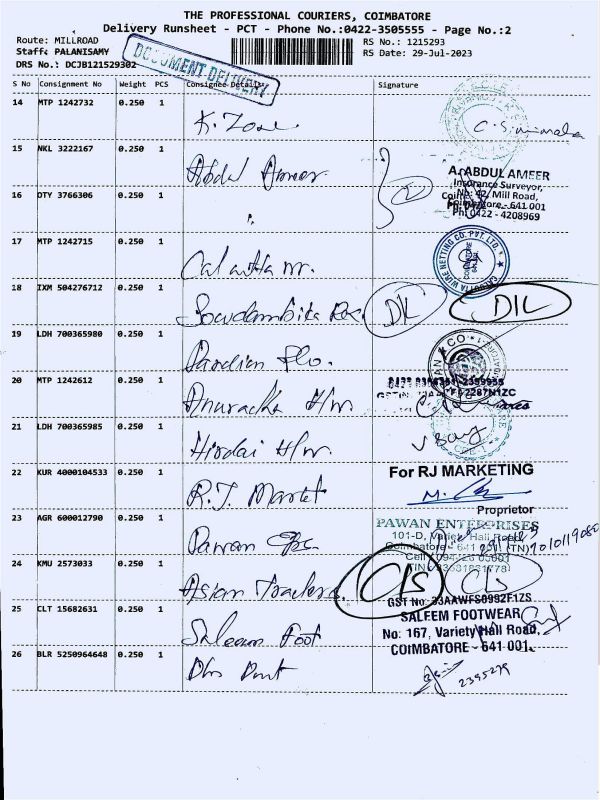 THE PROFESSIONAL COURIERS, COIMBATORE
Delivery Runsheet - PCT - Phone No.:0422-3505555 - Page No.:2
Route: MILLROAD
RS No.: 1215293
Staff: PALANISAMY
RS Date: 29-Jul-2023
DRS No.: DCJB121529302
DOCUMENT DELIVERY
S No Consignment No Weight PCS Consignee Details Signature
14 MTP 1242732 0.250 1
K. Zone
15 NKL 3222167 0.250 1
Abdul Ameer
A. ABDUL AMEER
Insurance Surveyor,
No: 42, Mill Road,
Coimbatore - 641 001
Ph: 0422 - 4208969
16 OTY 3766306 0.250 1
17 MTP 1242715 0.250 1
Calcutta wr.
CALCUTTA WIRE NETTING CO. PVT. LTD.
18 IXM 504276712 0.250 1
Sowdambika
DIL
19 LDH 700365980 0.250 1
20 MTP 1242612 0.250 1
Anuradha H/w
21 LDH 700365985 0.250 1
H/w.
22 KUR 4000104533 0.250 1
R.J. Market
For RJ MARKETING
Proprietor
23 AGR 600012790 0.250 1
Pawan
PAWAN ENTERPRISES
101-D, Variety Hall Road
Coimbatore - 641 001 (TN)
24 KMU 2573033 0.250 1
Asian Traders
C/s
GST No: 33AAWFS0992F1ZS
25 CLT 15682631 0.250 1
Saleem Foot
SALEEM FOOTWEAR
No: 167, Variety Hall Road,
COIMBATORE - 641 001.
26 BLR 5250964648 0.250 1
2395279